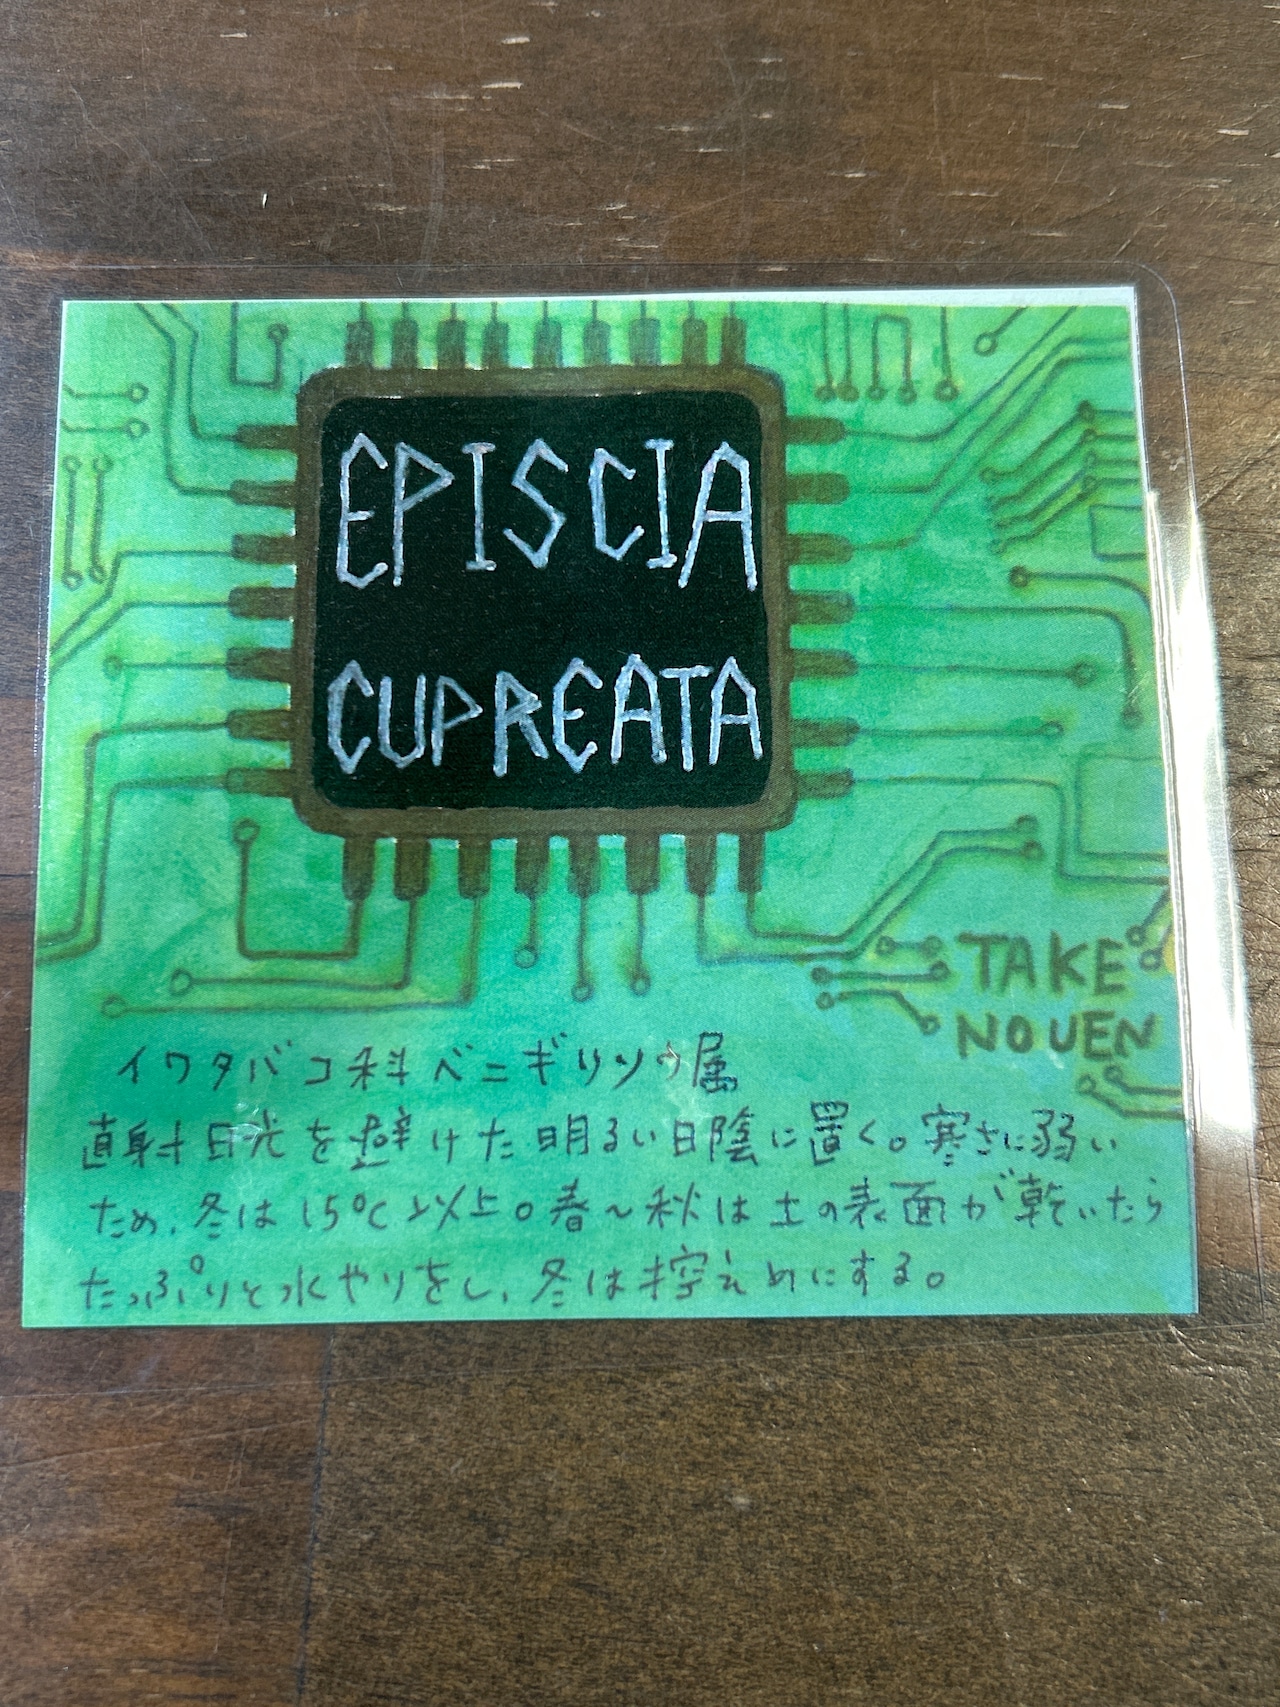 EPISCIA
CUPREATA
TAKE
NOUEN
イワタバコ科ベニギリソウ属
直射日光を避けた明るい日陰に置く。寒さに弱い
ため、冬は15℃以上。春~秋は土の表面が乾いたら
たっぷりと水やりをし、冬は控えめにする。